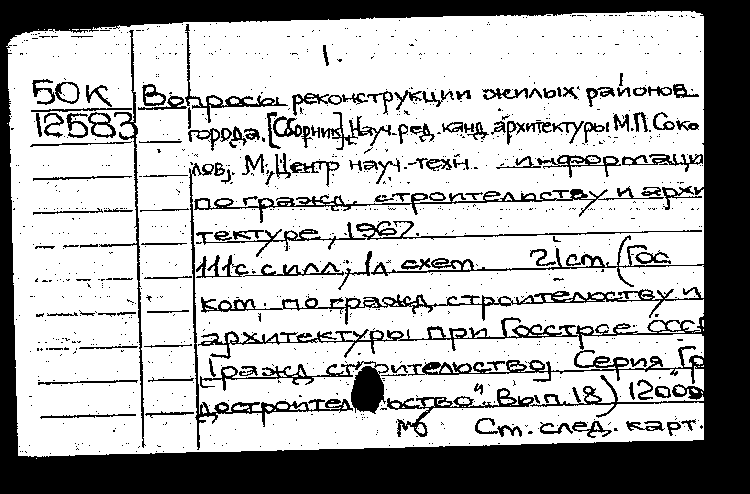 1.
50К Вопросы реконструкции жилых районов
12583 города. [Сборник]. Науч. ред. канд. архитектуры М.П. Соко
лов]. М., Центр науч.-техн. информаци
по гражд. строительству и архи
тектуре, 1967.
111с. с илл.; 1л. схем. 21см. (Гос
ком. по гражд. строительству и
архитектуры при Госстрое СССР
Гражд строительство]. Серия "Гр
достроительство". Вып. 18) 1200
мб Ст. след. карт.